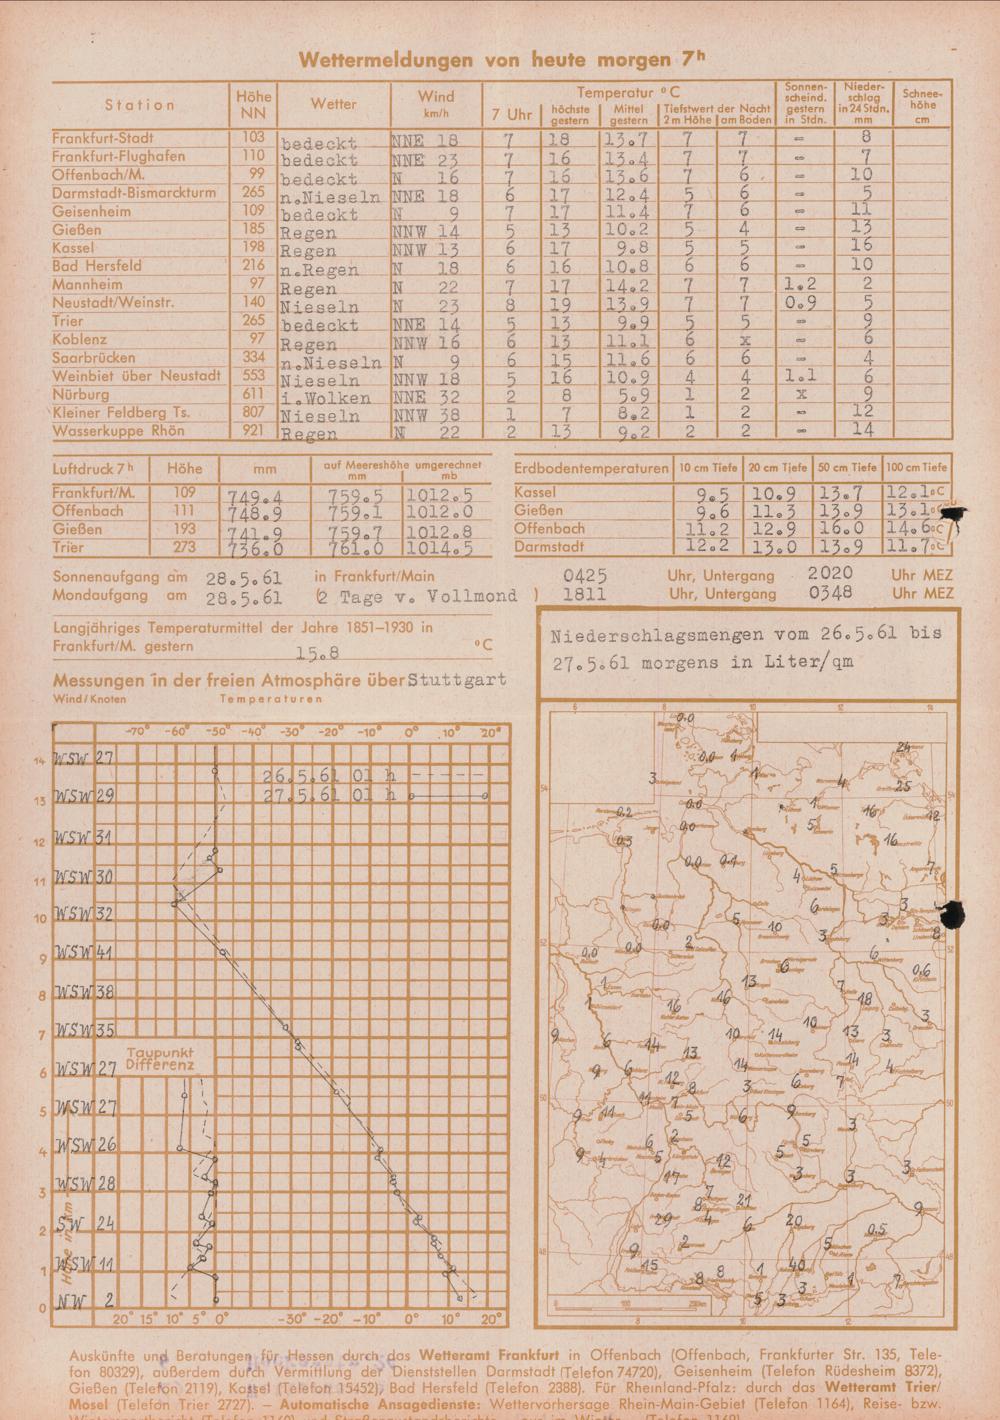 Wettermeldungen von heute morgen 7ʰ
Station Höhe NN Wetter Wind km/h Temperatur °C Sonnen-scheind. gestern in Stdn. Nieder-schlag in 24 Stdn. mm Schnee-höhe cm
7 Uhr höchste gestern Mittel gestern Tiefstwert der Nacht 2 m Höhe am Boden
Frankfurt-Stadt 103 bedeckt NNE 18 7 18 13.7 7 7 - 8
Frankfurt-Flughafen 110 bedeckt NNE 23 7 16 13.4 7 7 - 7
Offenbach/M. 99 bedeckt N 16 7 16 13.6 7 6 - 10
Darmstadt-Bismarckturm 265 n.Nieseln NNE 18 6 17 12.4 5 6 - 5
Geisenheim 109 bedeckt N 9 7 17 11.4 7 6 - 11
Gießen 185 Regen NNW 14 5 13 10.2 5 4 - 13
Kassel 198 Regen NNW 13 6 17 9.8 5 5 - 16
Bad Hersfeld 216 n.Regen N 18 6 16 10.8 6 6 - 10
Mannheim 97 Regen N 22 7 17 14.2 7 7 1.2 2
Neustadt/Weinstr. 140 Nieseln N 23 8 19 13.9 7 7 0.9 5
Trier 265 bedeckt NNE 14 5 13 9.9 5 5 - 9
Koblenz 97 Regen NNW 16 6 13 11.1 6 x - 6
Saarbrücken 334 n.Nieseln N 9 6 15 11.6 6 6 - 4
Weinbiet über Neustadt 553 Nieseln NNW 18 5 16 10.9 4 4 1.1 6
Nürburg 611 i.Wolken NNE 32 2 8 5.9 1 2 x 9
Kleiner Feldberg Ts. 807 Nieseln NNW 38 1 7 8.2 1 2 - 12
Wasserkuppe Rhön 921 Regen N 22 2 13 9.2 2 2 - 14
Luftdruck 7ʰ Höhe mm auf Meereshöhe umgerechnet mm mb
Frankfurt/M. 109 749.4 759.5 1012.5
Offenbach 111 748.9 759.1 1012.0
Gießen 193 741.9 759.7 1012.8
Trier 273 736.0 761.0 1014.5
Erdbodentemperaturen 10 cm Tiefe 20 cm Tiefe 50 cm Tiefe 100 cm Tiefe
Kassel 9.5 10.9 13.7 12.1°C
Gießen 9.6 11.3 13.9 13.1°C
Offenbach 11.2 12.9 16.0 14.6°C
Darmstadt 12.2 13.0 13.9 11.7°C
Sonnenaufgang am 28.5.61 in Frankfurt/Main 0425 Uhr, Untergang 2020 Uhr MEZ
Mondaufgang am 28.5.61 (2 Tage v. Vollmond ) 1811 Uhr, Untergang 0348 Uhr MEZ
Langjähriges Temperaturmittel der Jahre 1851–1930 in
Frankfurt/M. gestern 15.8 °C
Messungen in der freien Atmosphäre über Stuttgart
Wind/Knoten Temperaturen
-70° -60° -50° -40° -30° -20° -10° 0° 10° 20°
14 WSW 27
26.5.61 01 h
13 WSW 29 27.5.61 01 h
12 WSW 31
11 WSW 30
10 WSW 32
9 WSW 41
8 WSW 38
7 WSW 35
Taupunkt
6 WSW 27 Differenz
5 WSW 27
4 WSW 26
3 WSW 28
2 SW 24
1 WSW 11
0 NW 2
Höhe in km
20° 15° 10° 5° 0° -30° -20° -10° 0° 10° 20°
Niederschlagsmengen vom 26.5.61 bis
27.5.61 morgens in Liter/qm
6 8 10 12 14
0.0
24
0.0 4
3 1 4 25
0.0
0.2 1 16 12
0.0 5
0.3 16
0.0 0.1 4 5 7
6 3
0.0 5 10 3 3 8
0.0 0.0 2 6
6 0.6
1 13 7
1 16 16 18
10 3
9 6 14 10 14 13 3
13
9 6 14 14 4
12 8 3 6 7
11 7
9 11 5 6 9 3
6 2 5
9 4 5 12 5 3
17 3 3
7 21
8 9
29 4 6 20 0.5
9 2 5
15 8 8 1 40 1 7
3
5 3
Auskünfte und Beratungen für Hessen durch das Wetteramt Frankfurt in Offenbach (Offenbach, Frankfurter Str. 135, Tele-
fon 80329), außerdem durch Vermittlung der Dienststellen Darmstadt (Telefon 74720), Geisenheim (Telefon Rüdesheim 8372),
Gießen (Telefon 2119), Kassel (Telefon 15452), Bad Hersfeld (Telefon 2388). Für Rheinland-Pfalz: durch das Wetteramt Trier/
Mosel (Telefon Trier 2727). – Automatische Ansagedienste: Wettervorhersage Rhein-Main-Gebiet (Telefon 1164), Reise- bzw.